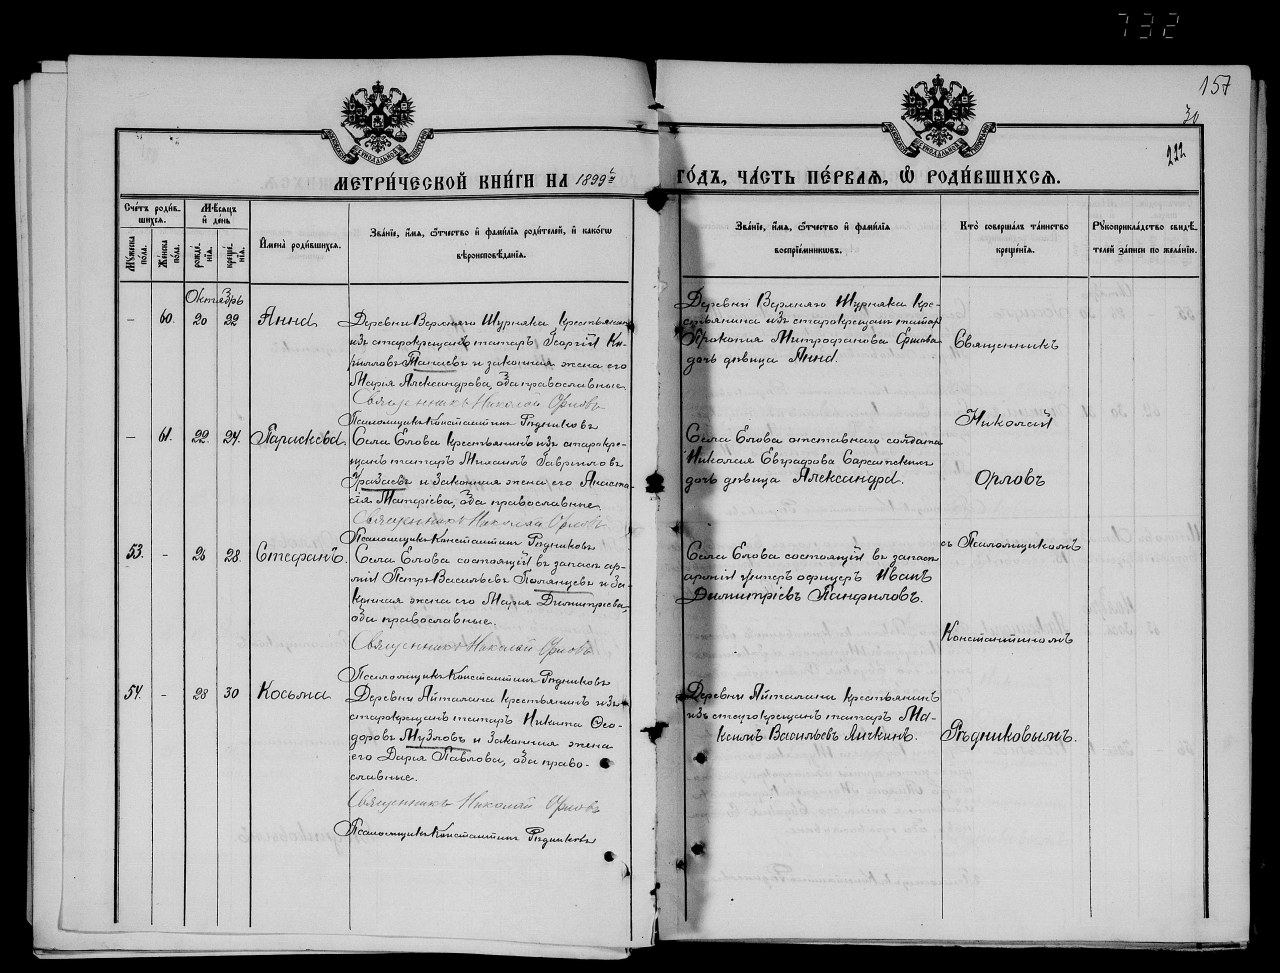 732
157
30
222
МОСКОВСКОЙ СѴНОДАЛЬНОЙ ТИПОГРАФІИ
МОСКОВСКОЙ СѴНОДАЛЬНОЙ ТИПОГРАФІИ
МЕТРИ́ЧЕСКОЙ КНИ́ГИ НА 1899й
ГО́ДЪ, ЧА́СТЬ ПЕ́РВАЯ, Ѡ РОДИ́ВШИХСЯ.
Сче́тъ роди́в-
шихся.
Му́жска по́ла.
Же́нска по́ла.
Мѣ́сяцъ
и де́нь
рожде́-
нія.
креще́-
нія.
Имена̀ роди́вшихся.
Зва́ніе, и́мя, ѻ҆́тчество и фами́лія роди́телей, и како́гѡ
вѣроисповѣ́данія.
Зва́ніе, и́мя, ѻ҆́тчество и фами́лія
воспріе́мниковъ.
Кто̀ соверша́лъ та́инство
креще́нія.
Рꙋкоприкла́дство свидѣ́-
телей за́писи по жела́нію.
Октябрь
– 60. 20 22 Анна
Деревни Верхняго Шурняка, крестьянинъ
изъ старокрещенъ татаръ Георгій Ки-
рилловъ Танаевъ и законная жена его
Марія Александрова, оба православные
Священникъ Николай Орловъ
Псаломщикъ Константинъ Рѣдниковъ
Деревни Верхняго Шурняка кре-
стьянина изъ старокрещенъ татаръ
Прокопія Митрофанова Ершова
дочь дѣвица Анна.
Священникъ
– 61. 22. 24. Параскева
Села Елова крестьянинъ изъ старокре-
щенъ татаръ Михаилъ Гавриловъ
и законная жена его Анаста-
сія Матфіева, оба православные
Священникъ Николай Орловъ
Псаломщикъ Константинъ Рѣдниковъ
Села Елова отставного солдата
Николая Евграфова
дочь дѣвица Александра.
Николай
Орловъ
53. – 26 28 Стефанъ.
Села Елова состоящій въ запасѣ ар-
міи Петръ Васильевъ Полянцевъ и за-
конная жена его Марія Димитріева,
оба православные.
Священникъ Николай Орловъ
Псаломщикъ Константинъ Рѣдниковъ
Села Елова состоящій въ запасѣ
арміи унтеръ офицеръ Иванъ
Димитріевъ Панфиловъ.
съ Псаломщикомъ
Константиномъ
54. – 28 30 Косьма
Деревни Айталана крестьянинъ изъ
старокрещенъ татаръ Никита Ѳео-
доровъ Музловъ и законная жена
его Дарія Павлова, оба право-
славные.
Священникъ Николай Орловъ
Псаломщикъ Константинъ Рѣдниковъ
Деревни Айталана крестьянинъ
изъ старокрещенъ татаръ Ма-
ксимъ Васильевъ Яичкинъ.
Рѣдниковымъ.